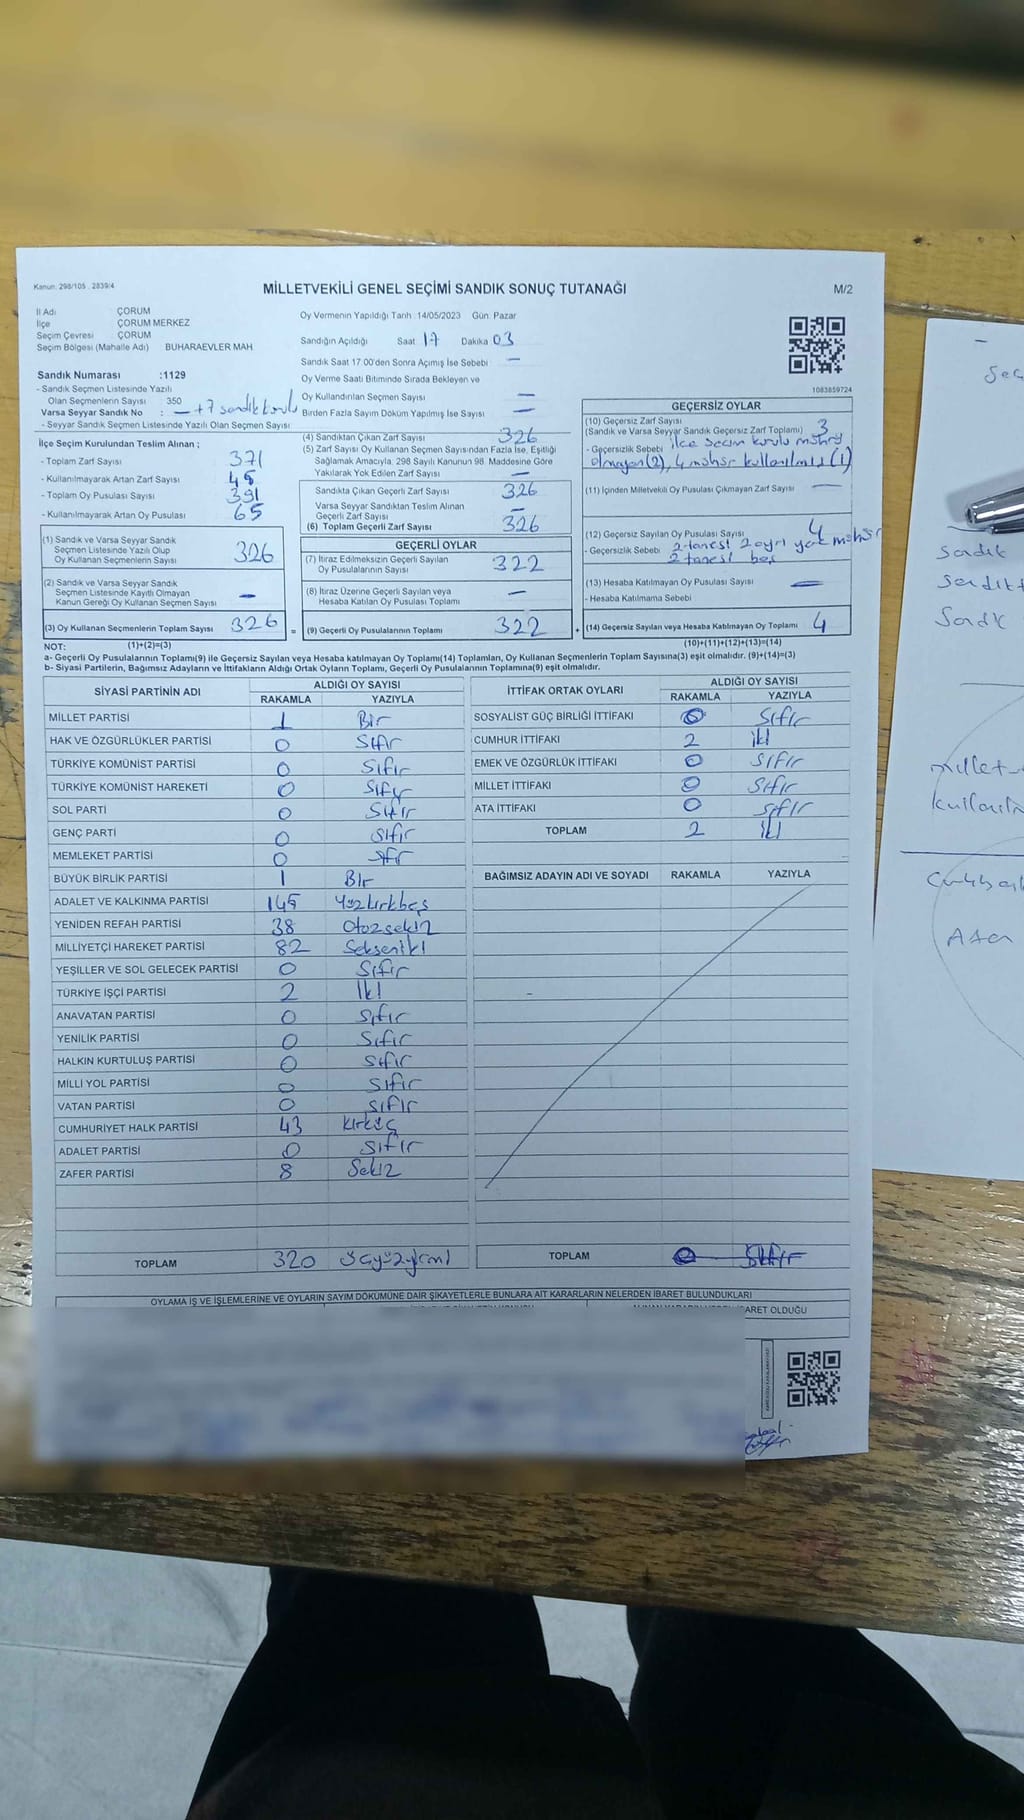 Kanun: 298/105 . 2839/4
MİLLETVEKİLİ GENEL SEÇİMİ SANDIK SONUÇ TUTANAĞI
M/2
İl Adı ÇORUM
İlçe ÇORUM MERKEZ
Seçim Çevresi ÇORUM
Seçim Bölgesi (Mahalle Adı) BUHARAEVLER MAH
Sandık Numarası :1129
- Sandık Seçmen Listesinde Yazılı
Olan Seçmenlerin Sayısı : 350
Varsa Seyyar Sandık No : — +7 sandık kurulu
- Seyyar Sandık Seçmen Listesinde Yazılı Olan Seçmen Sayısı
Oy Vermenin Yapıldığı Tarih :14/05/2023 Gün: Pazar
Sandığın Açıldığı Saat 17 Dakika 03
Sandık Saat 17.00'den Sonra Açımış İse Sebebi —
Oy Verme Saati Bitiminde Sırada Bekleyen ve
Oy Kullandırılan Seçmen Sayısı —
Birden Fazla Sayım Döküm Yapılmış İse Sayısı —
1083859724
İlçe Seçim Kurulundan Teslim Alınan ;
- Toplam Zarf Sayısı 371
- Kullanılmayarak Artan Zarf Sayısı 45
- Toplam Oy Pusulası Sayısı 391
- Kullanılmayarak Artan Oy Pusulası 65
(1) Sandık ve Varsa Seyyar Sandık
Seçmen Listesinde Yazılı Olup
Oy Kullanan Seçmenlerin Sayısı 326
(2) Sandık ve Varsa Seyyar Sandık
Seçmen Listesinde Kayıtlı Olmayan
Kanun Gereği Oy Kullanan Seçmen Sayısı —
(3) Oy Kullanan Seçmenlerin Toplam Sayısı 326 =
(4) Sandıktan Çıkan Zarf Sayısı 326
(5) Zarf Sayısı Oy Kullanan Seçmen Sayısından Fazla İse, Eşitliği
Sağlamak Amacıyla, 298 Sayılı Kanunun 98. Maddesine Göre
Yakılarak Yok Edilen Zarf Sayısı —
Sandıkta Çıkan Geçerli Zarf Sayısı 326
Varsa Seyyar Sandıktan Teslim Alınan
Geçerli Zarf Sayısı —
(6) Toplam Geçerli Zarf Sayısı 326
GEÇERLİ OYLAR
(7) İtiraz Edilmeksizin Geçerli Sayılan
Oy Pusulalarının Sayısı 322
(8) İtiraz Üzerine Geçerli Sayılan veya
Hesaba Katılan Oy Pusulası Toplamı —
(9) Geçerli Oy Pusulalarının Toplamı 322 +
GEÇERSİZ OYLAR
(10) Geçersiz Zarf Sayısı
(Sandık ve Varsa Seyyar Sandık Geçersiz Zarf Toplamı) 3
- Geçersizlik Sebebi ilçe seçim kurulu mührü
olmayan(2), 4 mühür kullanılmış (1)
(11) İçinden Milletvekili Oy Pusulası Çıkmayan Zarf Sayısı —
(12) Geçersiz Sayılan Oy Pusulası Sayısı 4
- Geçersizlik Sebebi 2 tanesi 2 ayrı yere mühür
2 tanesi boş
(13) Hesaba Katılmayan Oy Pusulası Sayısı —
- Hesaba Katılmama Sebebi
(14) Geçersiz Sayılan veya Hesaba Katılmayan Oy Toplamı 4
NOT: (1)+(2)=(3) (10)+(11)+(12)+(13)=(14)
a- Geçerli Oy Pusulalarının Toplamı(9) ile Geçersiz Sayılan veya Hesaba katılmayan Oy Toplamı(14) Toplamları, Oy Kullanan Seçmenlerin Toplam Sayısına(3) eşit olmalıdır. (9)+(14)=(3)
b- Siyasi Partilerin, Bağımsız Adayların ve İttifakların Aldığı Ortak Oyların Toplamı, Geçerli Oy Pusulalarının Toplamına(9) eşit olmalıdır.
SİYASİ PARTİNİN ADI ALDIĞI OY SAYISI
RAKAMLA YAZIYLA
MİLLET PARTİSİ 1 Bir
HAK VE ÖZGÜRLÜKLER PARTİSİ 0 Sıfır
TÜRKİYE KOMÜNİST PARTİSİ 0 Sıfır
TÜRKİYE KOMÜNİST HAREKETİ 0 Sıfır
SOL PARTİ 0 Sıfır
GENÇ PARTİ 0 Sıfır
MEMLEKET PARTİSİ 0 Sıfır
BÜYÜK BİRLİK PARTİSİ 1 Bir
ADALET VE KALKINMA PARTİSİ 145 Yüzkırkbeş
YENİDEN REFAH PARTİSİ 38 Otozsekiz
MİLLİYETÇİ HAREKET PARTİSİ 82 Sekseniki
YEŞİLLER VE SOL GELECEK PARTİSİ 0 Sıfır
TÜRKİYE İŞÇİ PARTİSİ 2 İki
ANAVATAN PARTİSİ 0 Sıfır
YENİLİK PARTİSİ 0 Sıfır
HALKIN KURTULUŞ PARTİSİ 0 Sıfır
MİLLİ YOL PARTİSİ 0 Sıfır
VATAN PARTİSİ 0 Sıfır
CUMHURİYET HALK PARTİSİ 43 Kırküç
ADALET PARTİSİ 0 Sıfır
ZAFER PARTİSİ 8 Sekiz
TOPLAM 320 Üçyüzyirmi
İTTİFAK ORTAK OYLARI ALDIĞI OY SAYISI
RAKAMLA YAZIYLA
SOSYALİST GÜÇ BİRLİĞİ İTTİFAKI 0 Sıfır
CUMHUR İTTİFAKI 2 İki
EMEK VE ÖZGÜRLÜK İTTİFAKI 0 Sıfır
MİLLET İTTİFAKI 0 Sıfır
ATA İTTİFAKI 0 Sıfır
TOPLAM 2 İki
BAĞIMSIZ ADAYIN ADI VE SOYADI RAKAMLA YAZIYLA
TOPLAM 0 Sıfır
OYLAMA İŞ VE İŞLEMLERİNE VE OYLARIN SAYIM DÖKÜMÜNE DAİR ŞİKAYETLERLE BUNLARA AİT KARARLARIN NELERDEN İBARET BULUNDUKLARI
İBARET OLDUĞU
Seç
Sandık
Sandıkt
Sandık
millet
kullanılm